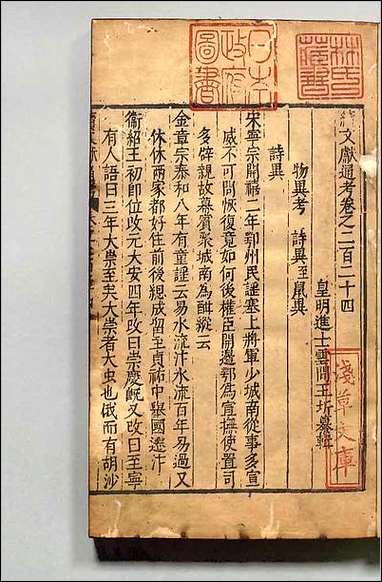 續文獻通考卷之二百二十四
皇明進士雲間王圻纂輯
物異考 詩異至鼠異
詩異
宋寧宗開禧二年鄂州民謠塞上將軍少城南從事多宣
威不可問恢復竟如何後權臣開邊鄂為宣撫使置司
多辟親故幕賓聚城南為酣縱云
金章宗泰和八年有童謠云易水流汴水流百年易過又
休休兩家都好住前後總成留至貞祐中舉國遷汴
衞紹王初即位改元大安四年改曰崇慶旣又改曰至寧
有人語曰三年大祟至矣大祟者大虫也俄而有胡沙
日本政府圖書
林氏藏書
淺草文庫